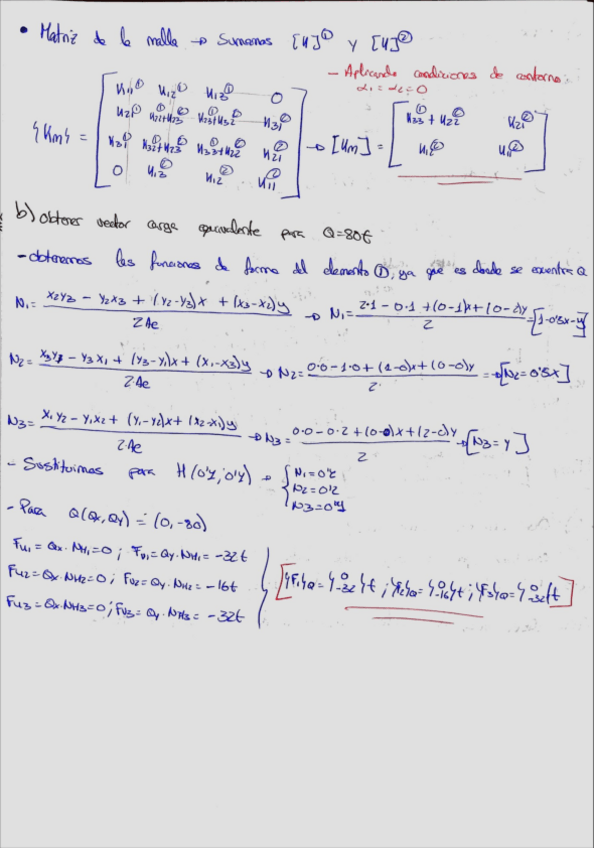 • Matriz de la malla → Sumamos [K]^① y [K]^②
- Aplicando condiciones de contorno:
α₁ = α₂ = 0
K11^① K12^① K13^① 0
K21^① K22^①+K33^② K23^①+K32^② K31^②
{Km} = K31^① K32^①+K23^② K33^①+K22^② K21^② → [Km] = K33^①+K22^② K21^② K12^② K11^②
0 K13^② K12^② K11^②
b) Obtener vector carga equivalente para Q=80t
- obtenemos las funciones de forma del elemento ①, ya que es donde se encuentra Q
N1 = (x2y3 - y2x3 + (y2-y3)x + (x3-x2)y) / 2Ae → N1 = (2·1 - 0·1 + (0-1)x + (0-2)y) / 2 = [1-0'5x-y]
N2 = (x3y1 - y3x1 + (y3-y1)x + (x1-x3)y) / 2·Ae → N2 = (0·0 - 1·0 + (1-0)x + (0-0)y) / 2 = → [N2 = 0'5x]
N3 = (x1y2 - y1x2 + (y1-y2)x + (x2-x1)y) / 2·Ae → N3 = (0·0 - 0·2 + (0-0)x + (2-0)y) / 2 → [N3 = y]
- Sustituimos para H → { N1 = N2 = 0'2 N3 = 0'4
- Para Q(Qx, Qy) = (0, -80)
Fu1 = Qx·NH1 = 0 ; Fv1 = Qy·NH1 = -32t
Fu2 = Qx·NH2 = 0 ; Fv2 = Qy·NH2 = -16t
Fu3 = Qx·NH3 = 0 ; Fv3 = Qy·NH3 = -32t
[{F1}Q = {0 -32}t ; {F2}Q = {0 -16}t ; {F3}Q = {0 -32}t]